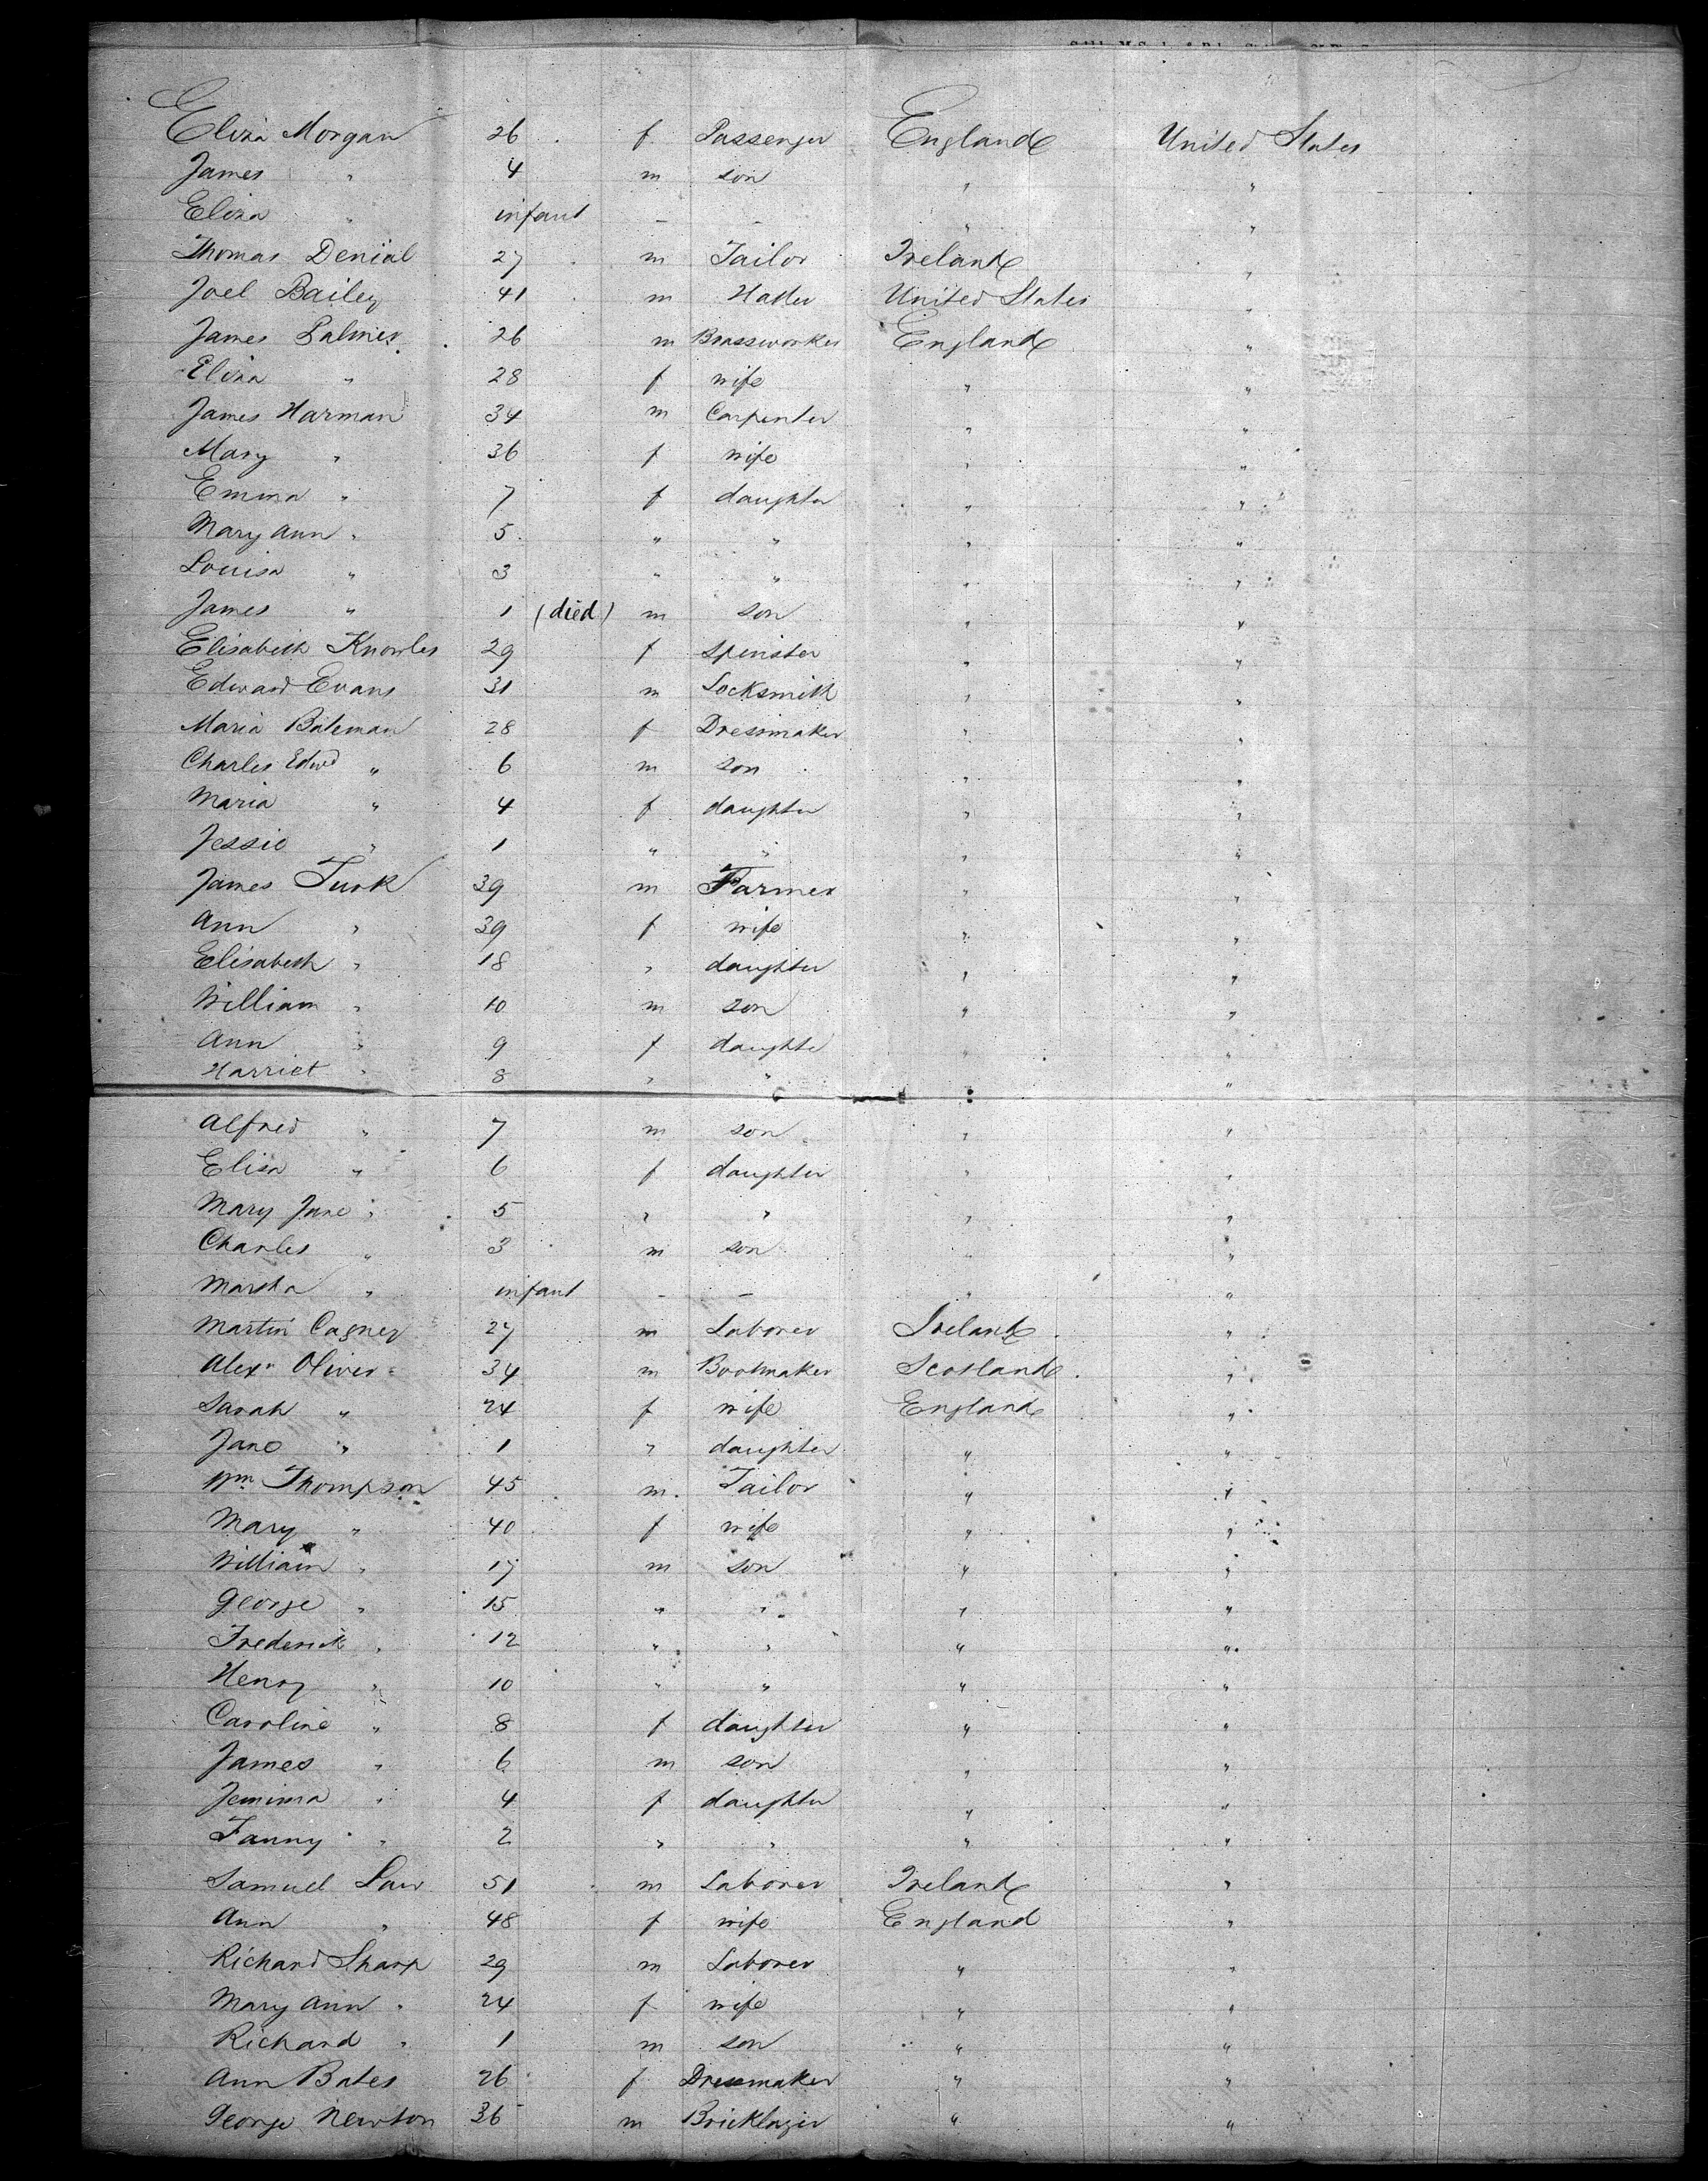 Eliza Morgan 26 f Passenger England United States
James " 4 m son " "
Eliza " infant – – " "
Thomas Denial 27 m Tailor Ireland "
Joel Bailey 41 m Hatter United States "
James Palmer 26 m Brassworker England "
Eliza " 28 f wife " "
James Harman 34 m Carpenter " "
Mary " 36 f wife " "
Emma " 7 f daughter " "
Mary Ann " 5 " " " "
Louisa " 3 " " " "
James " 1 (died) m son " "
Elisabeth Knowles 29 f Spinster " "
Edward Evans 31 m Locksmith " "
Maria Bateman 28 f Dressmaker " "
Charles Edwd " 6 m son " "
Maria " 4 f daughter " "
Jessie " 1 " " " "
James Turk 39 m Farmer " "
Ann " 39 f wife " "
Elisabeth " 18 " daughter " "
William " 10 m son " "
Ann " 9 f daughte " "
Harriet " 8 " " "
Alfred " 7 m son " "
Elisa " 6 f daughter " "
Mary Jane " 5 " " " "
Charles " 3 m son " "
Martha " infant – – " "
Martin Cagney 27 m Laborer Ireland "
Alexr Oliver 34 m Bootmaker Scotland "
Sarah " 24 f wife England "
Jane " 1 " daughter " "
Wm Thompson 45 m Tailor " "
Mary " 40 f wife " "
William " 17 m son " "
George " 15 " " " "
Frederick " 12 " " " "
Henry " 10 " " " "
Caroline " 8 f daughter " "
James " 6 m son " "
Jemima " 4 f daughter " "
Fanny " 2 " " " "
Samuel Law 51 m Laborer Ireland "
Ann " 48 f wife England "
Richard Sharp 29 m Laborer " "
Mary Ann " 24 f wife " "
Richard " 1 m son " "
Ann Bates 26 f Dressmaker " "
George Newton 36 m Bricklayer " "